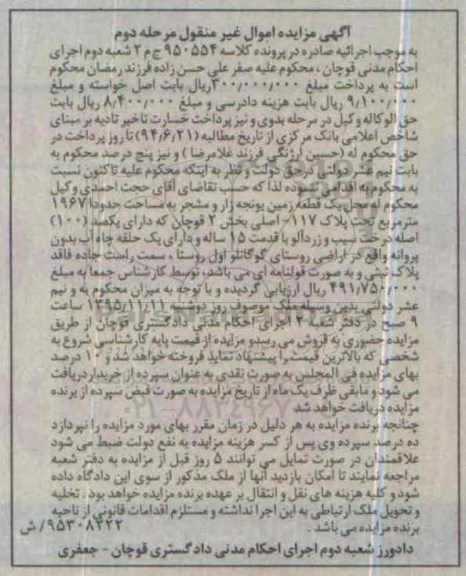 آگهی مزایده اموال غیر منقول مرحله دوم
به موجب اجرائیه صادره در پرونده کلاسه ۹۵۰۵۵۴ ج م ۲ شعبه دوم اجرای
احکام مدنی قوچان ، محکوم علیه صفر علی حسن زاده فرزند رمضان محکوم
است به پرداخت مبلغ ۳۰۰/۰۰۰/۰۰۰ ریال بابت اصل خواسته و مبلغ
۹/۱۰۰/۰۰۰ ریال بابت هزینه دادرسی و مبلغ ۸/۴۰۰/۰۰۰ ریال بابت
حق الوکاله وکیل در مرحله بدوی و نیز پرداخت خسارت تاخیر تادیه بر مبنای
شاخص اعلامی بانک مرکزی از تاریخ مطالبه (۹۴/۶/۲۱) تا روز پرداخت در
حق محکوم له (حسین ارژنگی فرزند غلامرضا ) و نیز پنج درصد محکوم به
بابت نیم عشر دولتی در حق دولت و نظر به اینکه محکوم علیه تاکنون نسبت
به محکوم به اقدامی ننموده لذا که حسب تقاضای آقای حجت احمدی وکیل
محکوم له محل یک قطعه زمین یونجه زار و مشجر به مساحت حدودا ۱۹۶۷
مترمربع تحت پلاک ۱۱۷- اصلی بخش ۲ قوچان که دارای یکصد (۱۰۰)
اصله درخت سیب و زردآلو با قدمت ۱۵ ساله و دارای یک حلقه چاه آب بدون
پروانه واقع در اراضی روستای گوگانلو اول روستا ، سمت راست جاده فاقد
پلاک ثبتی و به صورت قولنامه ای می باشد، توسط کارشناس جمعا به مبلغ
۴۹۱/۷۵۰/۰۰۰ ریال ارزیابی گردیده و با توجه به میزان محکوم به و نیم
عشر دولتی بدین وسیله ملک موصوف روز دوشنبه ۱۳۹۵/۱۱/۱۱ ساعت
۹ صبح در دفتر شعبه ۲ اجرای احکام مدنی دادگستری قوچان از طریق
مزایده حضوری به فروش می رسد و مزایده از قیمت پایه کارشناسی شروع به
شخصی که بالاترین قیمت را پیشنهاد نماید فروخته خواهد شد و ۱۰ درصد
بهای مزایده فی المجلس به صورت نقدی به عنوان سپرده از خریدار دریافت
می شود و مابقی ظرف یک ماه از تاریخ مزایده به صورت فیش سپرده از برنده
مزایده دریافت خواهد شد
چنانچه برنده مزایده به هر دلیل در زمان مقرر بهای مورد مزایده را نپردازد
ده درصد سپرده وی پس از کسر هزینه مزایده به نفع دولت ضبط می شود
علاقمندان در صورت تمایل می توانند ۵ روز قبل از مزایده به دفتر شعبه
مراجعه نمایند تا امکان بازدید آنها از ملک مذکور از سوی این دادگاه داده
شود و کلیه هزینه های نقل و انتقال بر عهده برنده مزایده خواهد بود . تخلیه
و تحویل ملک ارتباطی به این اجرا نداشته و مستلزم اقدامات قانونی از ناحیه
برنده مزایده می باشد . ۹۵۳۰۸۴۲۲/ ش
دادورز شعبه دوم اجرای احکام مدنی دادگستری قوچان - جعفری